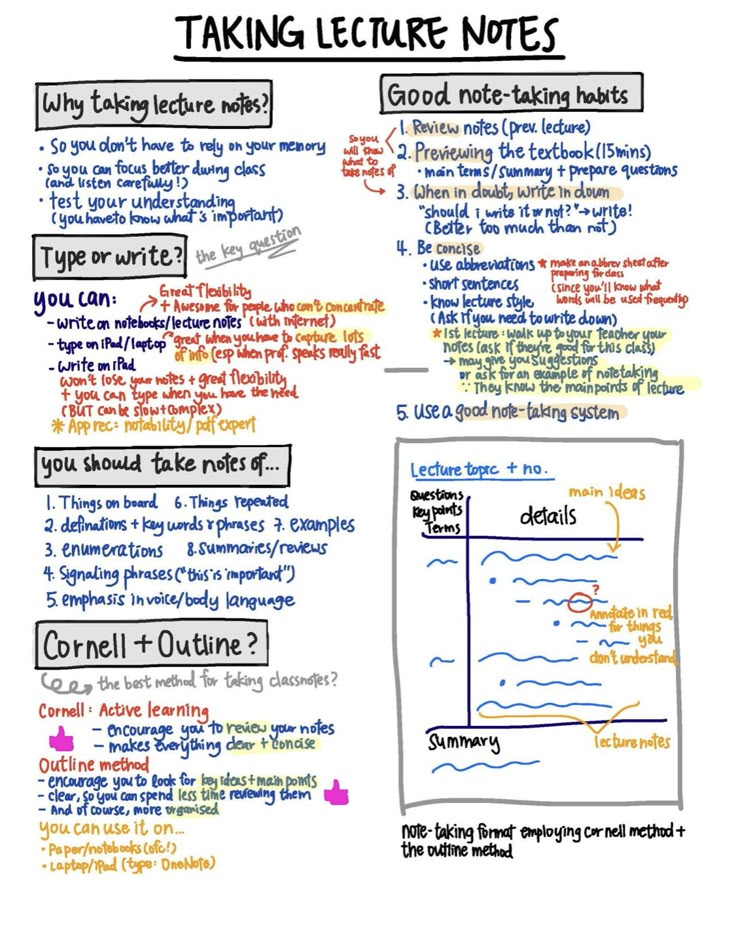 TAKING LECTURE NOTES
Why taking lecture notes?
• So you don't have to rely on your memory
• So you can focus better during class
(and listen carefully!)
• test your understanding
(you have to know what's important)
Type or write?
the key question
you can:
Great flexibility
+ Awesome for people who can't concentrate
- write on notebooks/lecture notes (with internet)
- type on iPad/laptop
great when you have to capture lots
of info (esp when prof. speaks really fast
- write on iPad
won't lose your notes + great flexibility
+ you can type when you have the need
(BUT can be slow + complex)
* App rec: notability/pdf expert
you should take notes of...
1. Things on board
2. definations + key words & phrases
3. enumerations
4. Signaling phrases ("this is important")
5. emphasis in voice/body language
6. Things repeated
7. examples
8. Summaries/reviews
Cornell + Outline?
the best method for taking classnotes?
Cornell: Active learning
- encourage you to review your notes
- makes everything clear + concise
Outline method
- encourage you to look for key ideas + main points
- clear, so you can spend less time reviewing them
- And of course, more organised
you can use it on...
• Paper/notebooks (ofc!)
• Laptop/iPad (type: OneNote)
Good note-taking habits
So you
will know
what to
take notes of
1. Review notes (prev. lecture)
2. Previewing the textbook (15mins)
• main terms/summary + prepare questions
3. When in doubt, write in down
"should i write it or not?" → write!
(Better too much than not)
4. Be concise
• use abbreviations * make an abbrev sheet after
preparing for class
(since you'll know what
words will be used frequently)
• short sentences
• know lecture style
(Ask if you need to write down)
* 1st lecture: walk up to your teacher your
notes (ask if they're good for this class)
→ may give you suggestions
or ask for an example of notetaking
∵ They know the main points of lecture
5. Use a good note-taking system
Lecture topic + no.
Questions
Key points
Terms
details
main ideas
?
Annotate in red
for things
you
don't understand
Summary
lecture notes
note-taking format employing cornell method +
the outline method